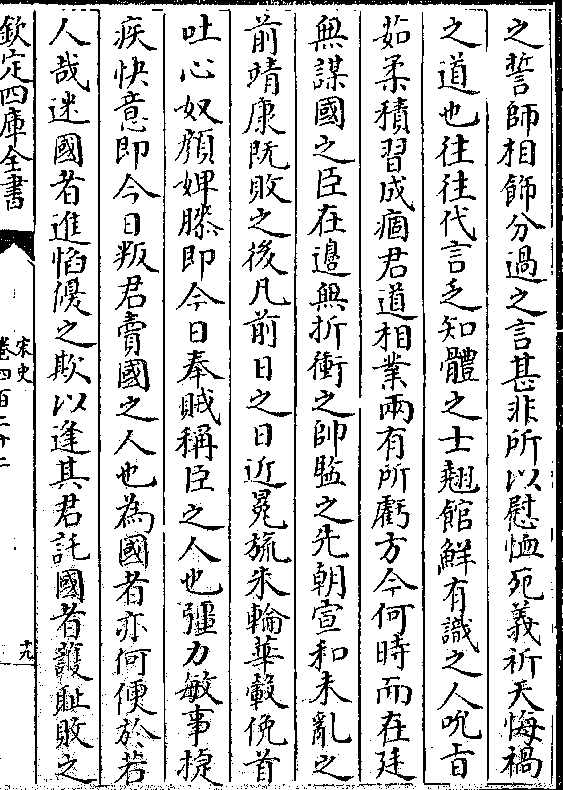 之誓師相飾分過之言甚非所以慰恤死義祈天悔禍
之道也往往代言乏知體之士翹館鮮有識之人吮旨
茹柔積習成痼君道相業兩有所虧方今何時而在廷
無謀國之臣在邉無折衝之帥監之先朝宣和未亂之
前靖康既敗之後凡前日之日近冕旒朱輪華轂俛首
吐心奴顔婢膝即今日奉賊稱臣之人也彊力敏事捷
疾快意即今日叛君賣國之人也為國者亦何便於若
人哉迷國者進慆優之欺以逢其君託國者護恥敗之
欽定四庫全書
宋史
卷四百二十二
十九